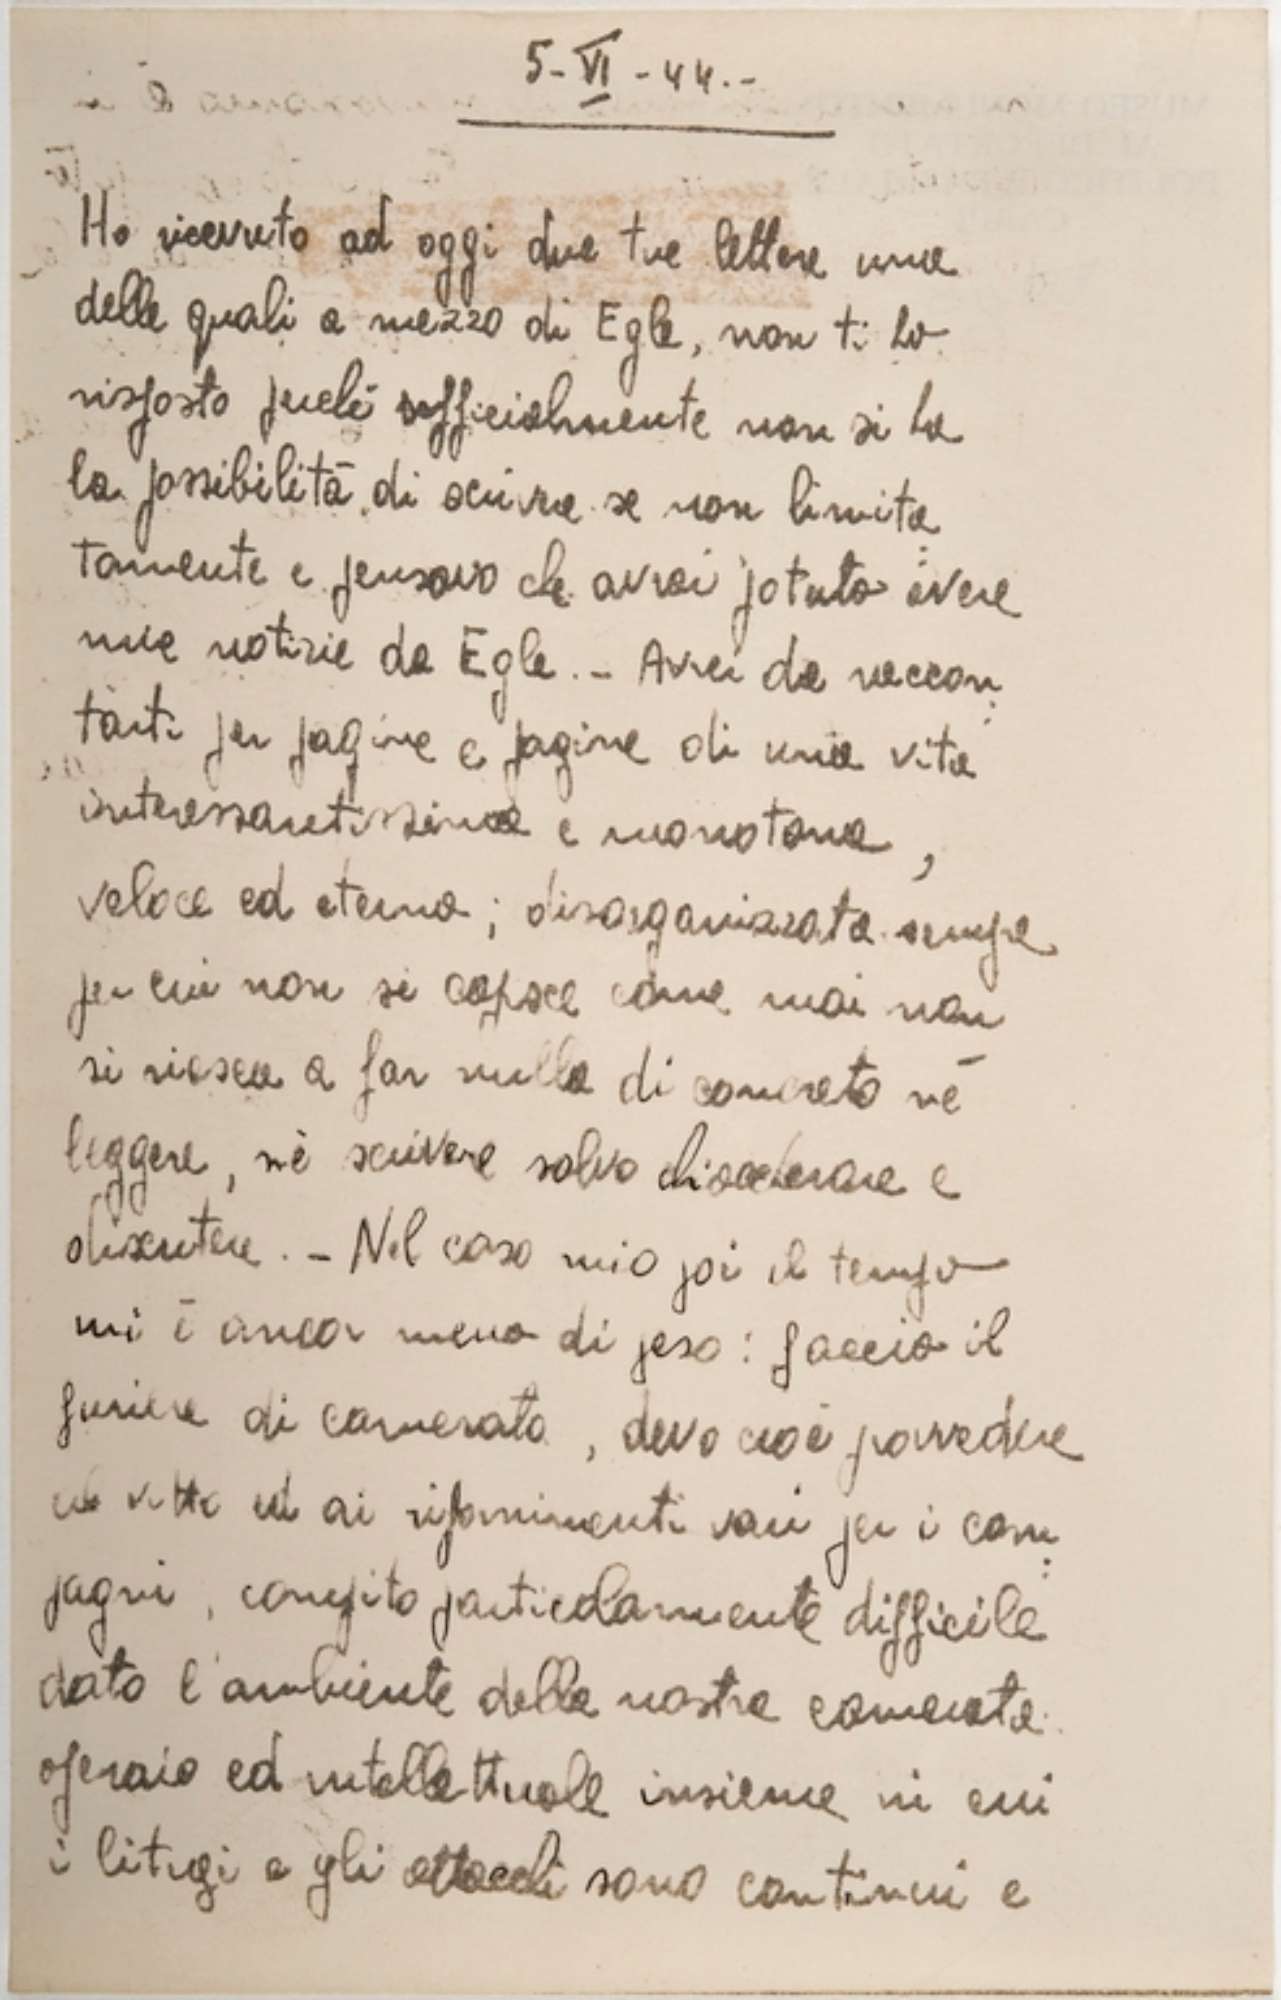 5-VI-44.-
Ho ricevuto ad oggi due tue lettere una
delle quali a mezzo di Egle, non ti ho
risposto perché ufficialmente non si ha
la possibilità di scrivere se non limita
tamente e pensavo che avrai potuto avere
mie notizie da Egle.- Avrei da raccon
tarti per pagine e pagine di una vita
interessantissima e monotona,
veloce ed eterna; disorganizzata sempre
per cui non si capisce come mai non
si riesca a far nulla di concreto né
leggere, né scrivere salvo chiacchierare e
discutere.- Nel caso mio poi il tempo
mi è ancor meno di peso: faccio il
furiere di camerata, devo cioè provvedere
al vitto ed ai rifornimenti vari per i com
pagni, compito particolarmente difficile
dato l'ambiente della nostra camerata
operaio ed intellettuale insieme in cui
i litigi e gli attacchi sono continui e